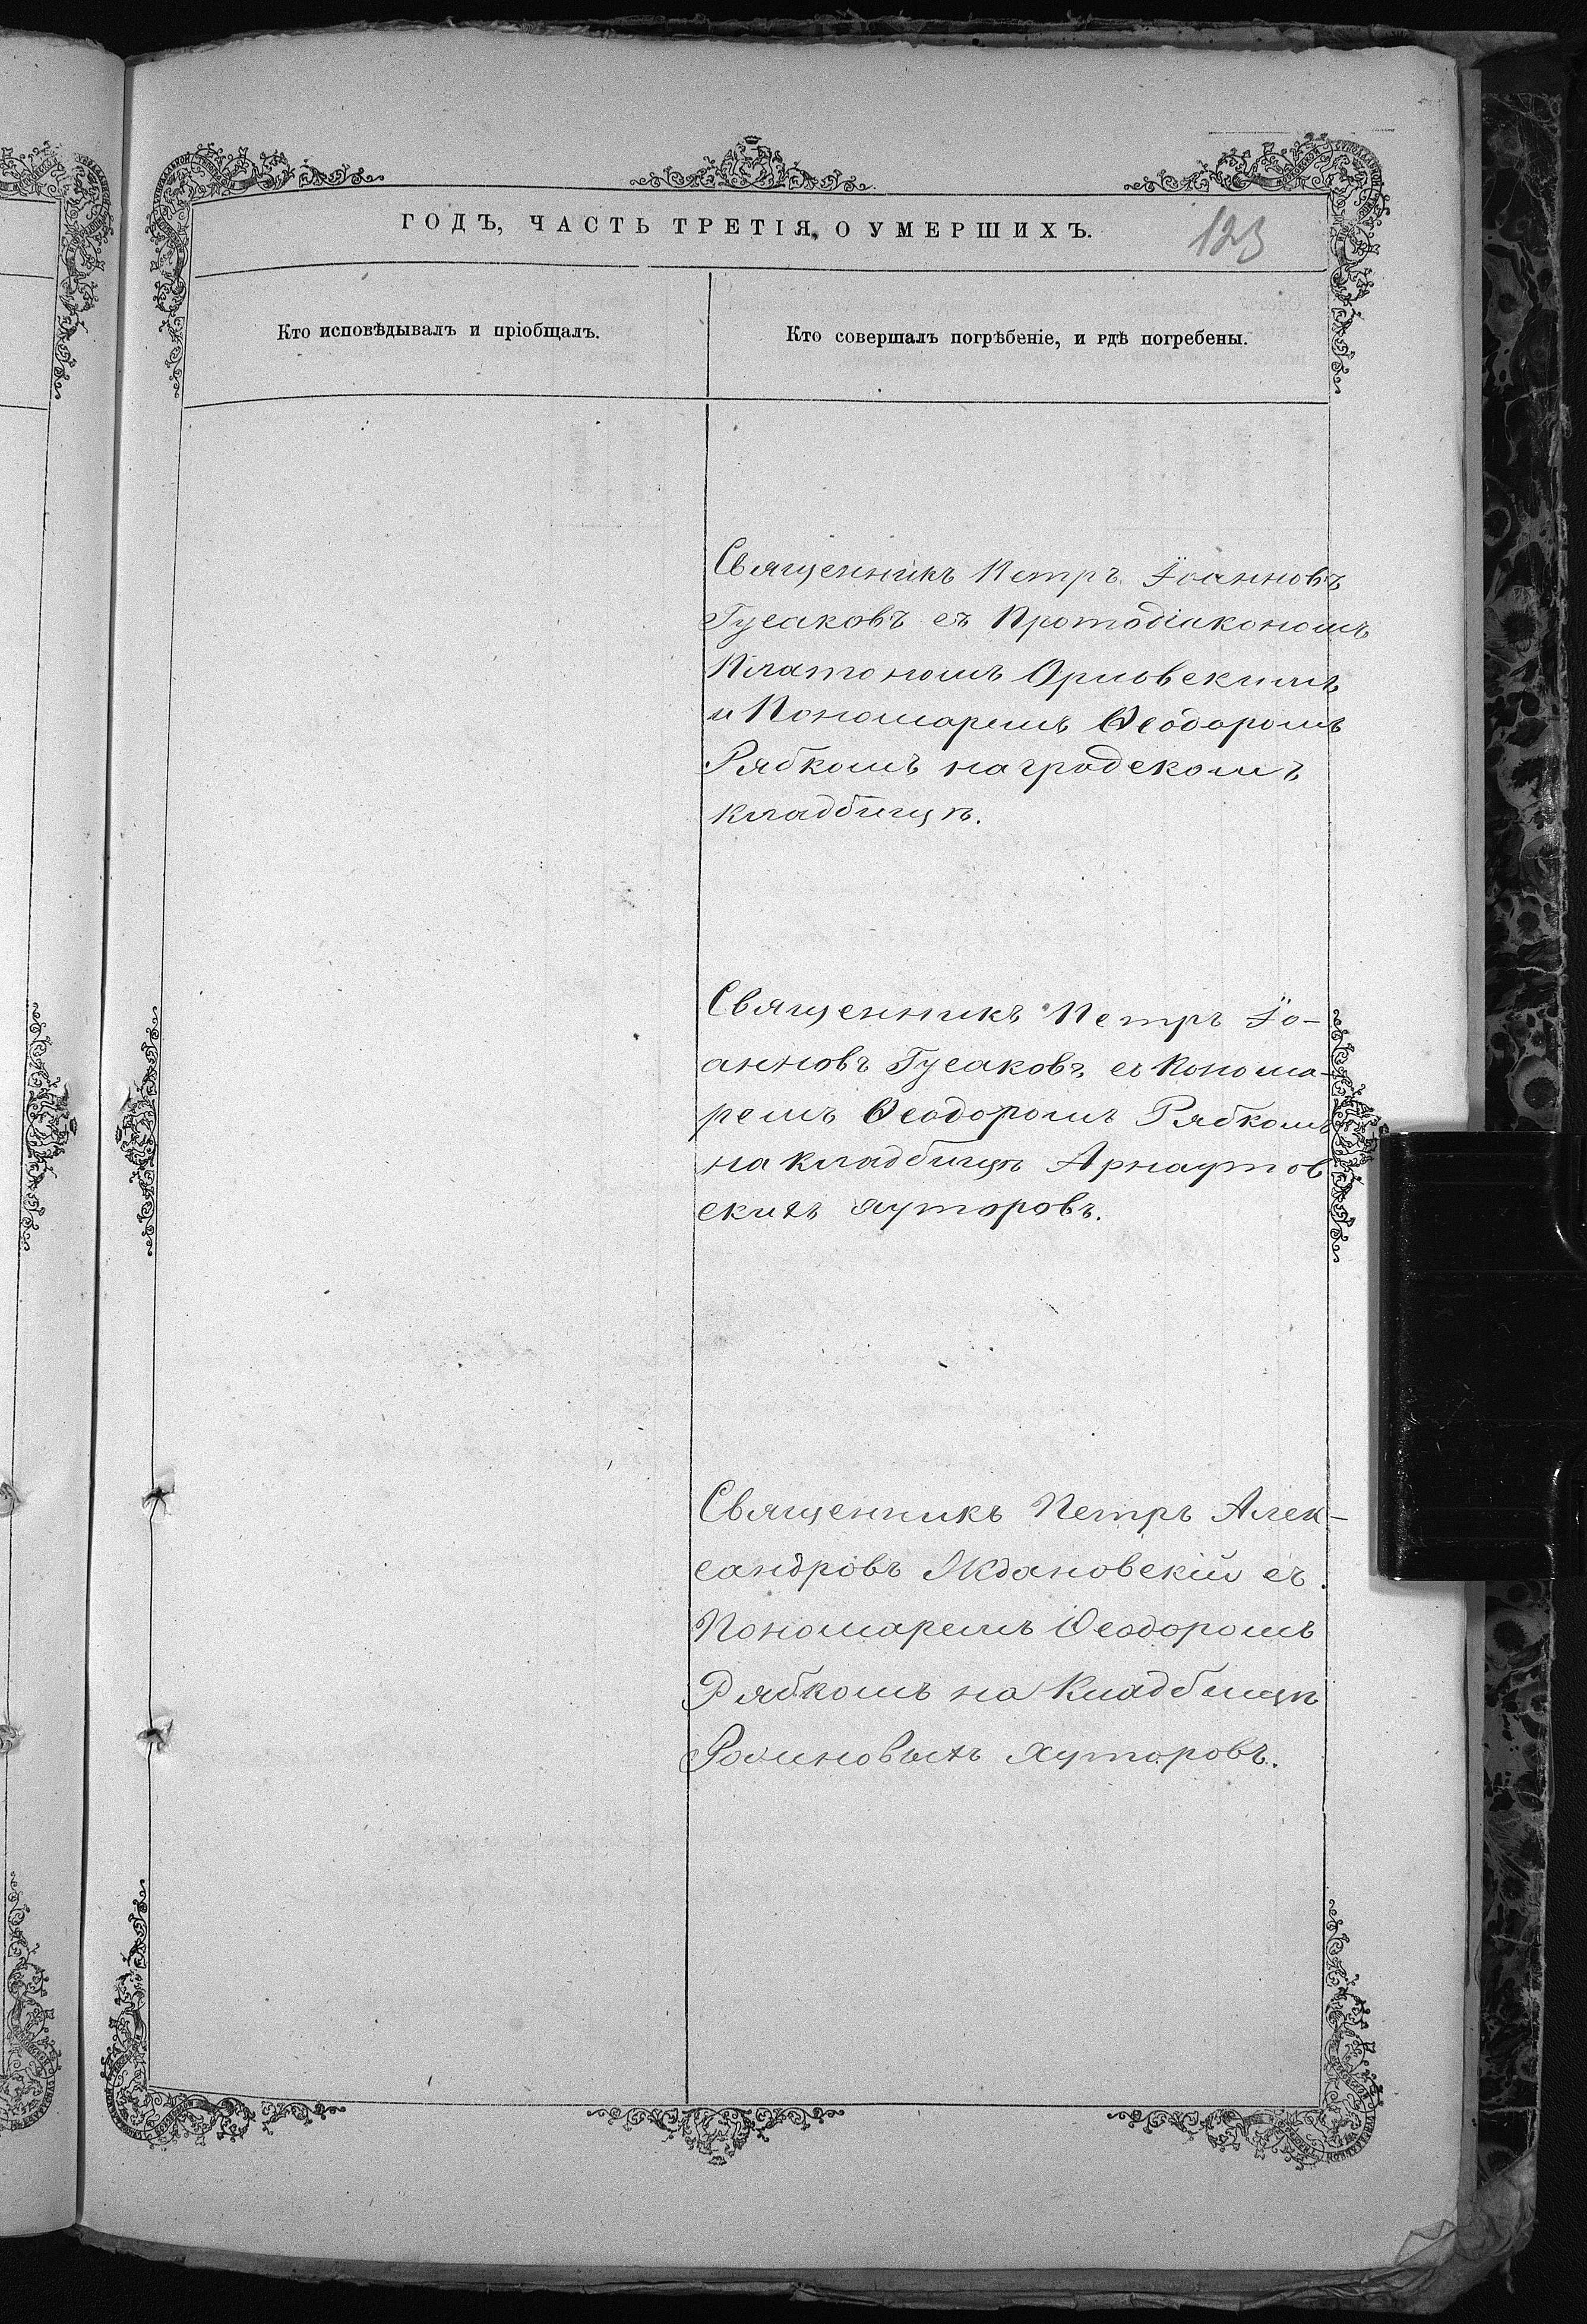 ГОДЪ, ЧАСТЬ ТРЕТІЯ, О УМЕРШИХЪ.
123
Кто исповѣдывалъ и пріобщалъ.
Кто совершалъ погрѣбеніе, и гдѣ погребены.
Священникъ Петръ Іоанновъ
Гусаковъ съ Протодіакономъ
Платономъ Орловскимъ
и Пономаремъ Ѳеодоромъ
Рябкомъ на градскомъ
кладбищѣ.
Священникъ Петръ Іо-
анновъ Гусаковъ съ Понома-
ремъ Ѳеодоромъ Рябкомъ
на кладбищѣ Арнаутов
скихъ хуторовъ.
Священникъ Петръ Алек-
сандровъ Ждановскій съ
Пономаремъ Ѳеодоромъ
Рябкомъ на Кладбищѣ
хуторовъ.